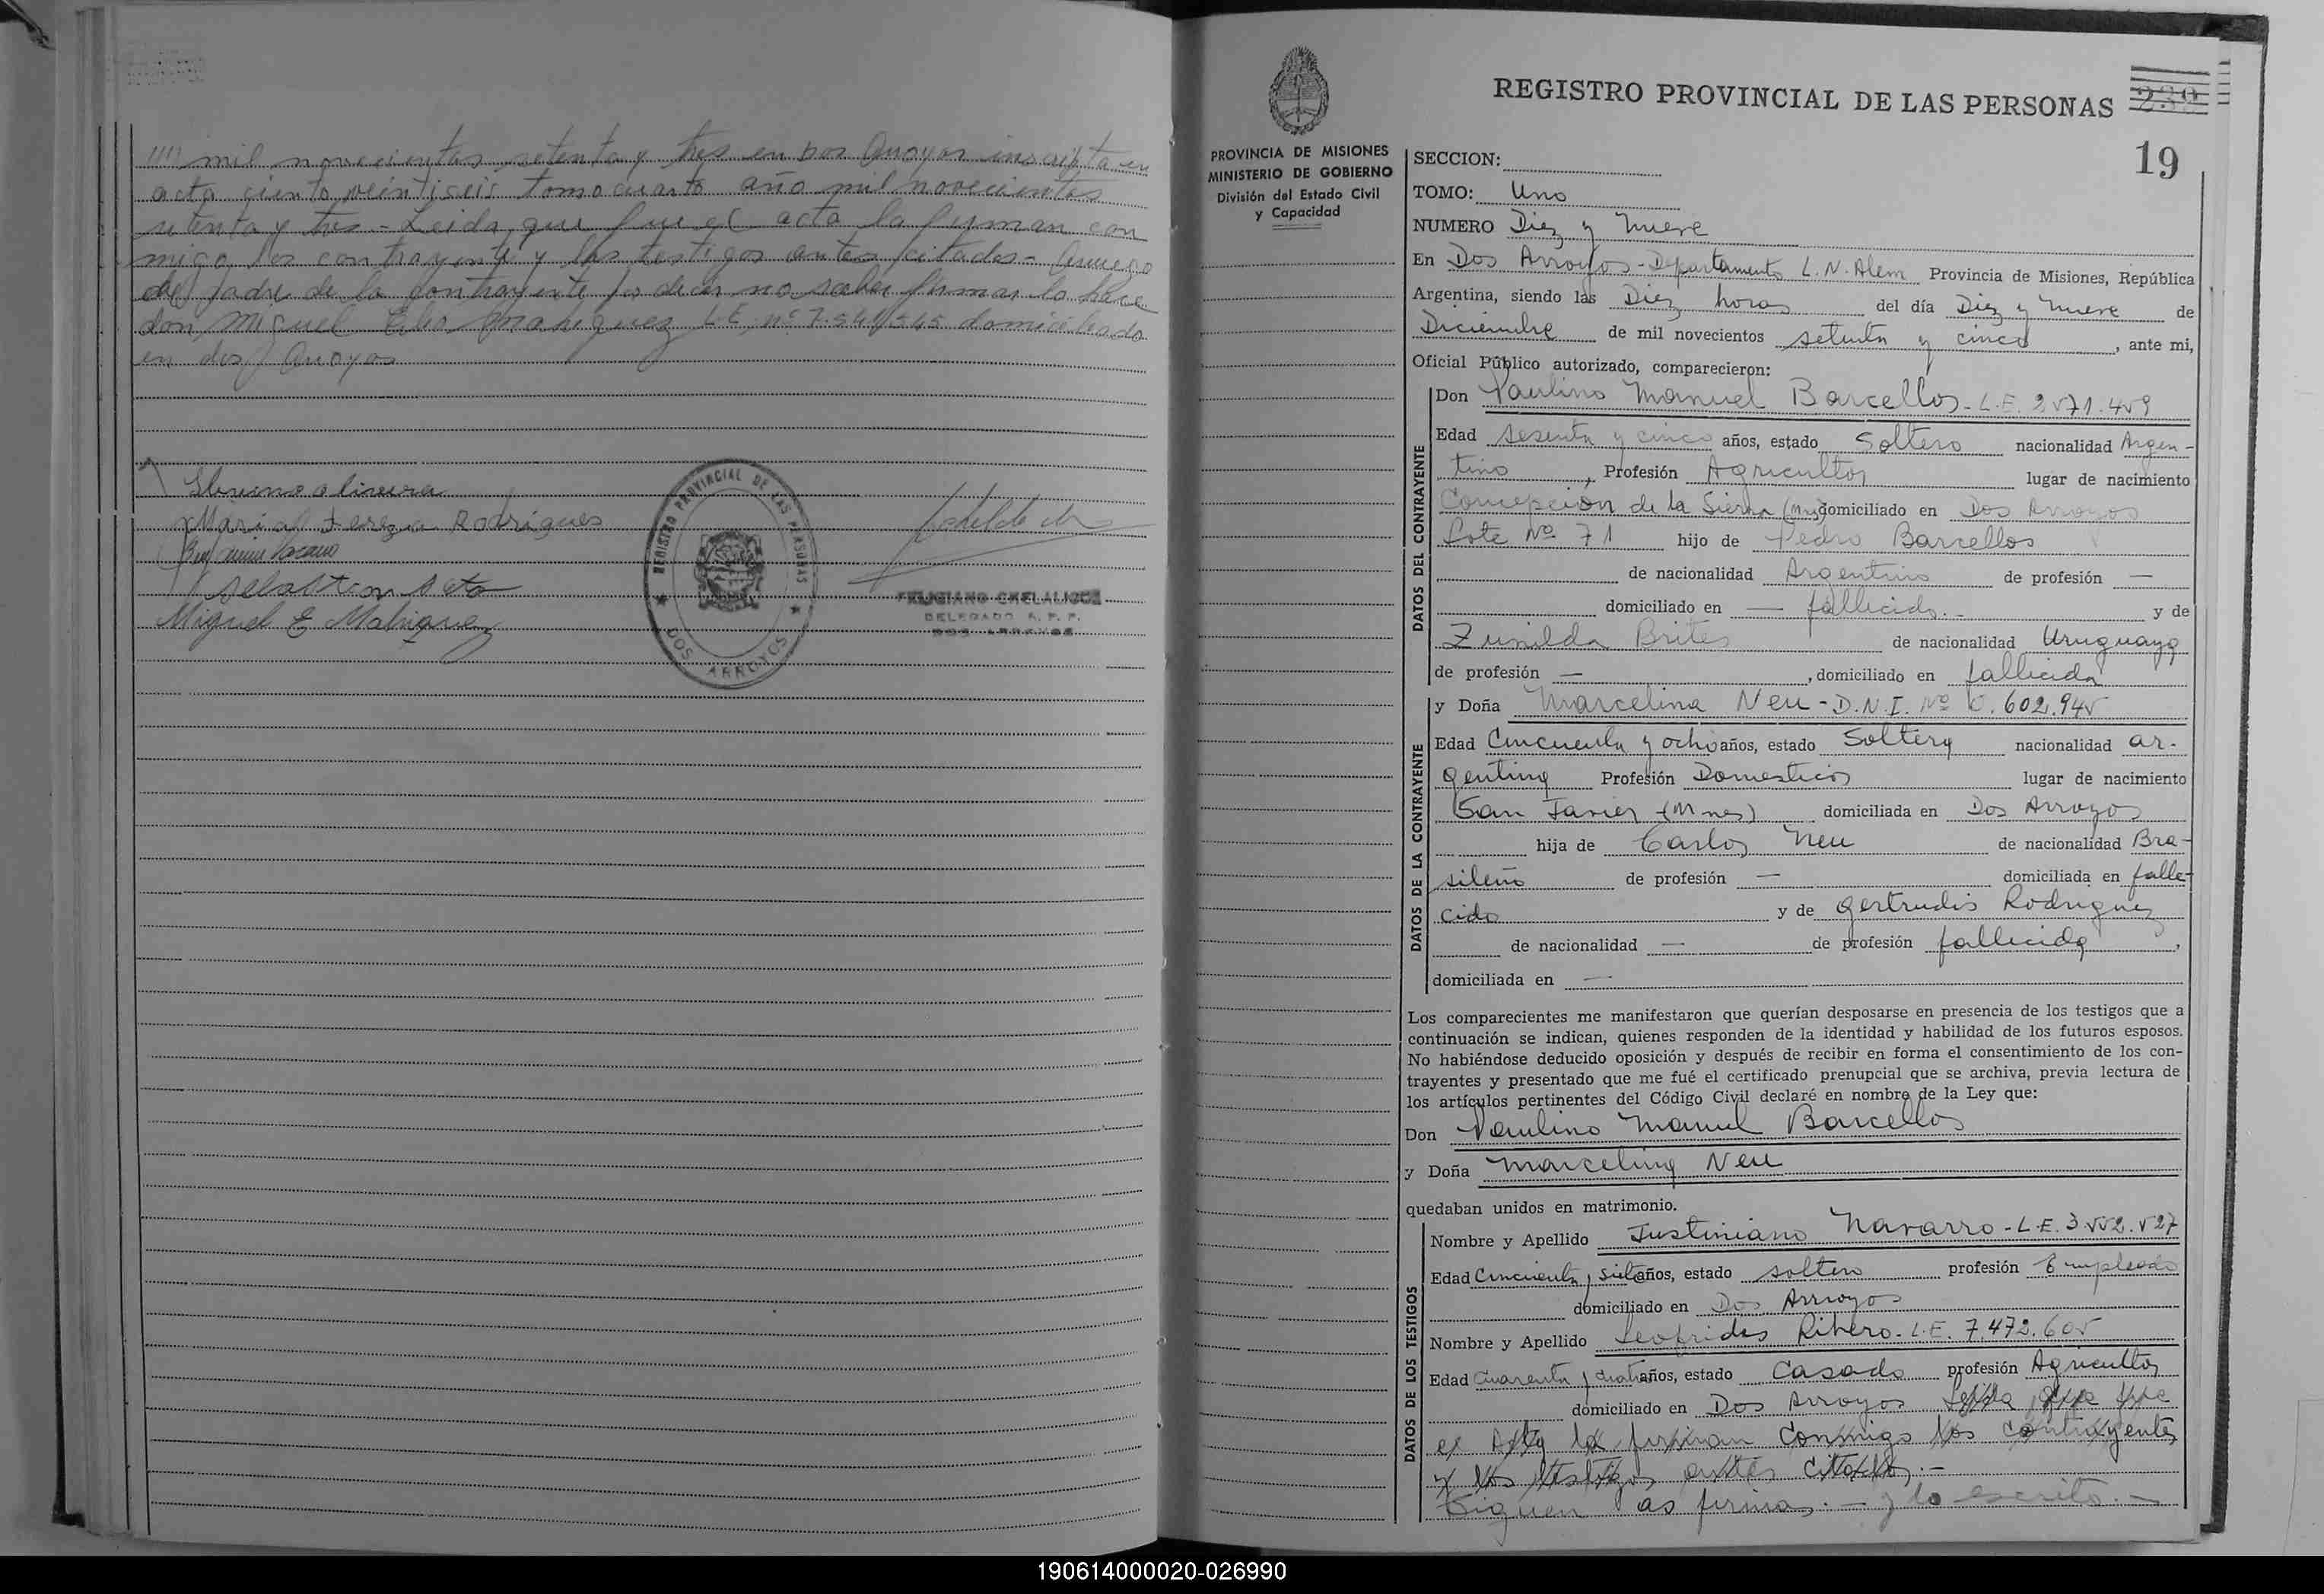 //// mil novecientos setenta y tres en Dos Arroyos inscripta en
acta ciento veintiseis tomo cuarto año mil novecientos
setenta y tres - Leida que fue el acta la firman con
migo los contrayente y los testigos antes citados - Aruego
del padre de la contrayente por decir no saber firmar lo hace
don Miguel E. Malriquez L.E. nº 7.541.545 domiciliado
en dos Arroyos
olivera
Maria Tereza Rodrigues
sebastian
Miguel E Malriquez
REGISTRO PROVINCIAL DE LAS PERSONAS
DOS ARROYOS
FELICIANO CHELALICHE
DELEGADO R. P. P.
DOS ARROYOS
REGISTRO PROVINCIAL DE LAS PERSONAS
239
19
PROVINCIA DE MISIONES
MINISTERIO DE GOBIERNO
División del Estado Civil
y Capacidad
SECCION:
TOMO: Uno
NUMERO Diez y nueve
En Dos Arroyos - Departamento L.N. Alem Provincia de Misiones, República
Argentina, siendo las Diez horas del día Diez y nueve de
Diciembre de mil novecientos setenta y cinco, ante mi,
Oficial Público autorizado, comparecieron:
DATOS DEL CONTRAYENTE
Don Paulino Manuel Barcellos - L.E. 2571.459
Edad sesenta y cinco años, estado Soltero nacionalidad Argen-
tino, Profesión Agricultor lugar de nacimiento
Concepción de la Sierra (Mnes) domiciliado en Dos Arroyos
Lote Nº 71 hijo de Pedro Barcellos
de nacionalidad Argentino de profesión —
domiciliado en — fallecido.- y de
Zunilda Brites de nacionalidad Uruguaya
de profesión —, domiciliado en fallecida
DATOS DE LA CONTRAYENTE
y Doña Marcelina Neu - D.N.I. Nº 6.602.945
Edad Cincuenta y ocho años, estado Soltera nacionalidad ar-
gentina Profesión Domesticos lugar de nacimiento
San Javier (Mnes) domiciliada en Dos Arroyos
hija de Carlos Neu de nacionalidad Bra-
sileño de profesión — domiciliada en falle-
cido y de Gertrudis Rodriguez
de nacionalidad — de profesión fallecida,
domiciliada en —
Los comparecientes me manifestaron que querían desposarse en presencia de los testigos que a
continuación se indican, quienes responden de la identidad y habilidad de los futuros esposos.
No habiéndose deducido oposición y después de recibir en forma el consentimiento de los con-
trayentes y presentado que me fué el certificado prenupcial que se archiva, previa lectura de
los artículos pertinentes del Código Civil declaré en nombre de la Ley que:
Don Paulino Manuel Barcellos
y Doña Marcelina Neu
quedaban unidos en matrimonio.
DATOS DE LOS TESTIGOS
Nombre y Apellido Justiniano Navarro - L.E. 3.552.527
Edad Cincuenta y siete años, estado soltero profesión Empleado
domiciliado en Dos Arroyos
Nombre y Apellido Leofrides Ribero. L.E. 7.472.605
Edad Cuarenta y cuatro años, estado Casado profesión Agricultor
domiciliado en Dos Arroyos Leida que fue
el Acta la firman conmigo los contrayentes
y los testigos antes citados.-
Siguen as firmas.- y lo escrito.-
190614000020-026990